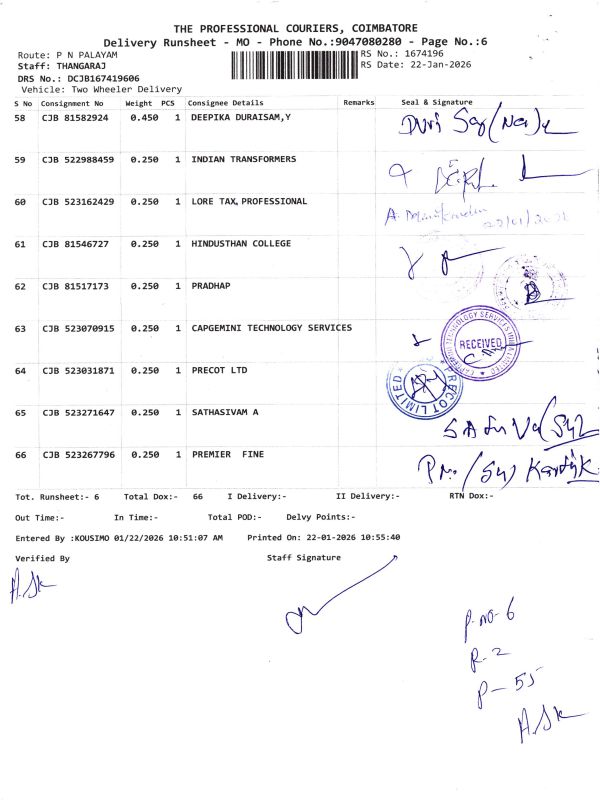 THE PROFESSIONAL COURIERS, COIMBATORE
Delivery Runsheet - MO - Phone No.:9047080280 - Page No.:6
Route: P N PALAYAM RS No.: 1674196
Staff: THANGARAJ RS Date: 22-Jan-2026
DRS No.: DCJB167419606
Vehicle: Two Wheeler Delivery
S No Consignment No Weight PCS Consignee Details Remarks Seal & Signature
58 CJB 81582924 0.450 1 DEEPIKA DURAISAM,Y
59 CJB 522988459 0.250 1 INDIAN TRANSFORMERS
60 CJB 523162429 0.250 1 LORE TAX, PROFESSIONAL
61 CJB 81546727 0.250 1 HINDUSTHAN COLLEGE
62 CJB 81517173 0.250 1 PRADHAP
63 CJB 523070915 0.250 1 CAPGEMINI TECHNOLOGY SERVICES
RECEIVED
64 CJB 523031871 0.250 1 PRECOT LTD
PRECOT LIMITED
65 CJB 523271647 0.250 1 SATHASIVAM A
66 CJB 523267796 0.250 1 PREMIER FINE
Tot. Runsheet:- 6 Total Dox:- 66 I Delivery:- II Delivery:- RTN Dox:-
Out Time:- In Time:- Total POD:- Delvy Points:-
Entered By :KOUSIMO 01/22/2026 10:51:07 AM Printed On: 22-01-2026 10:55:40
Verified By Staff Signature
P-NO-6
R-2
P-55